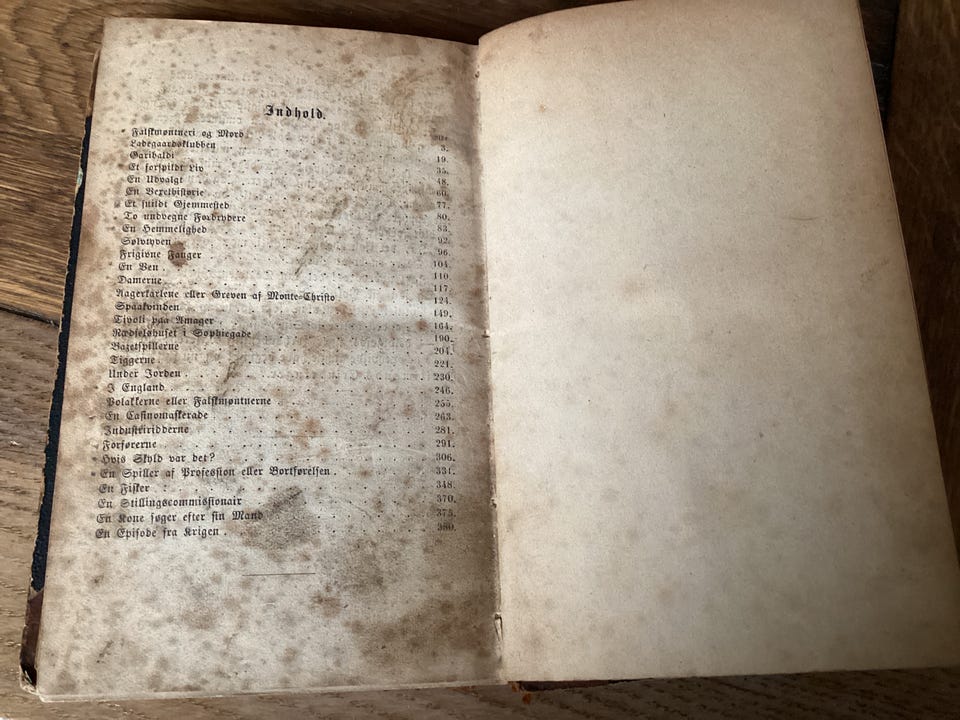 Indhold.
Pag.
Falskmøntneri og Mord 3.
Ladegaardsklubben 19.
Garibaldi 35.
Et forspildt Liv 48.
En Udvalgt 60.
En Vexelhistorie 77.
Et snildt Gjemmested 80.
To undvegne Forbrydere 83.
En Hemmelighed 92.
Sølvtyven 96.
Frigivne Fanger 104.
En Ven 110.
Damerne 117.
Aagerkarlene eller Greven af Monte-Christo 124.
Spaakvinden 149.
Tivoli paa Amager 164.
Rædselshuset i Sophiegade 190.
Bazetspillerne 204.
Tiggerne 221.
Under Jorden 230.
I England 246.
Polakkerne eller Falskmøntnerne 255.
En Casinomaskerade 263.
Industriridderne 281.
Forførerne 291.
Hvis Skyld var det? 306.
En Spiller af Profession eller Bortførelsen 331.
En Fisker 348.
En Stillingscommissionair 370.
En Kone søger efter sin Mand 375.
En Episode fra Krigen 380.